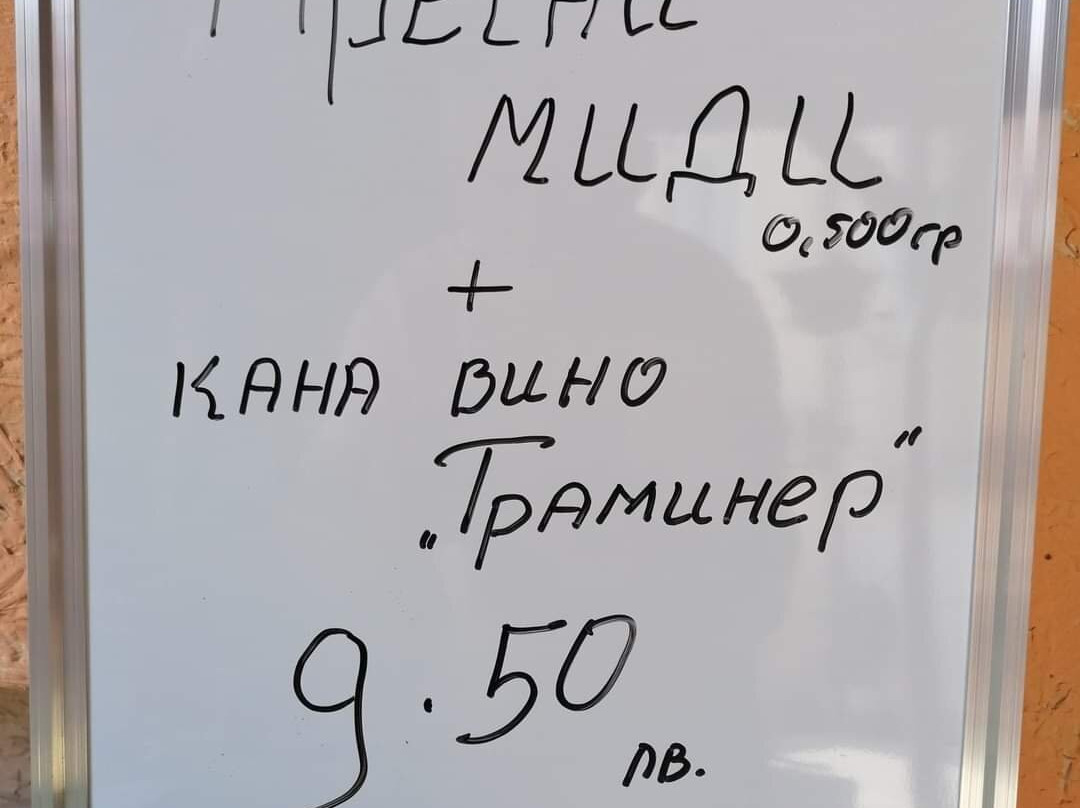 МИДИ
0,500гр
+
КАНА ВИНО
„Траминер“
9.50
лв.